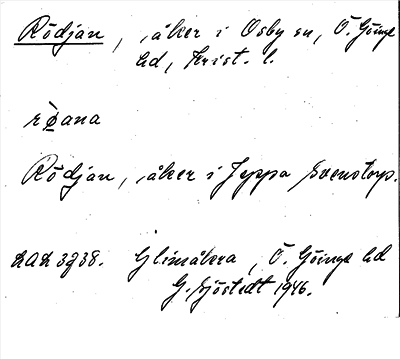 Rödjan, åker i Osby sn, Ö. Göinge
hd, Krist. l.
rø̀ana
Rödjan, åker i Jeppa Svenstorp.
LAL 3938. Glimåkra, Ö. Göinge hd
G. Sjöstedt 1946.